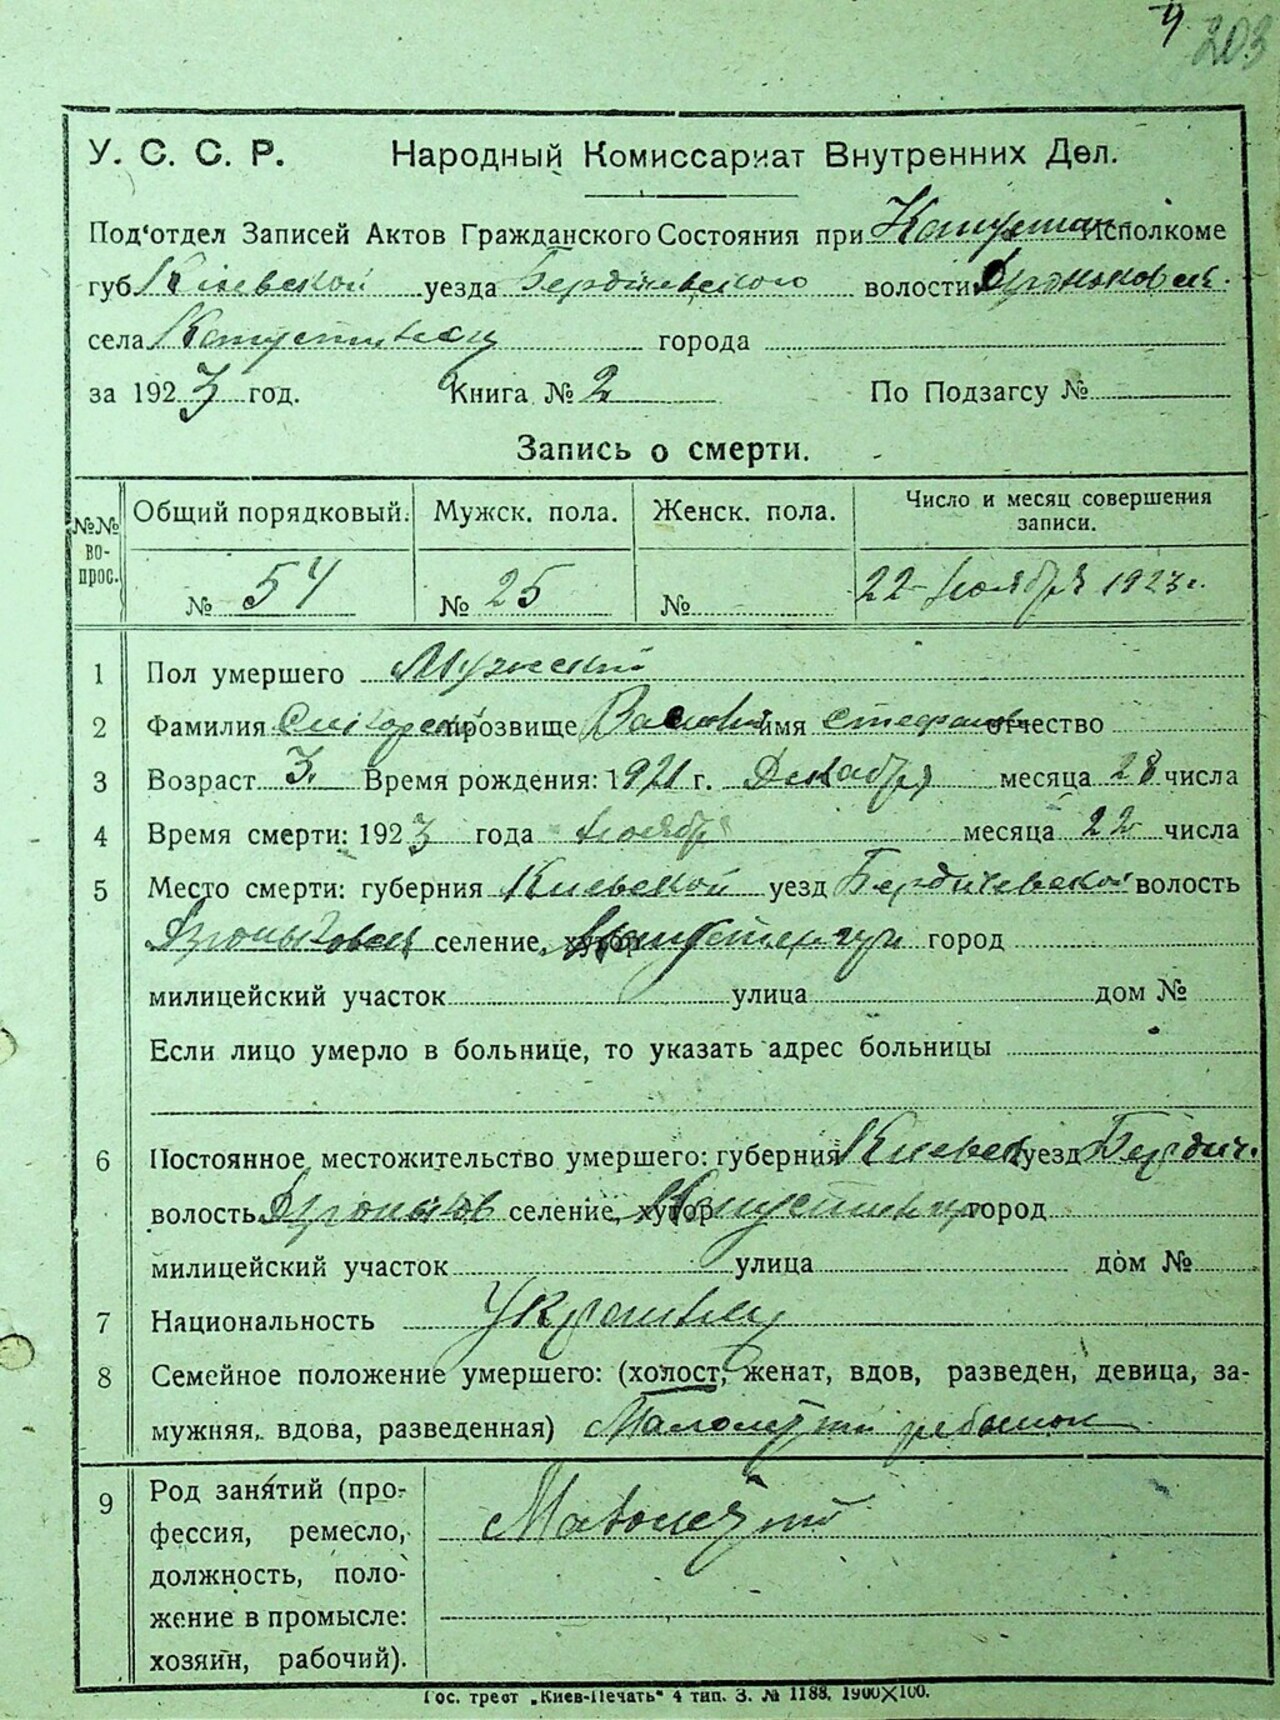 203
У. С. С. Р. Народный Комиссариат Внутренних Дел.
Под'отдел Записей Актов Гражданского Состояния при Исполкоме
губ Киевской уезда Бердичевского волости
села города
за 1923 год. Книга № 2 По Подзагсу №
Запись о смерти.
№№ вопрос. Общий порядковый. Мужск. пола. Женск. пола. Число и месяц совершения записи.
№ 54 № 25 № 22 ноября 1923 г.
1 Пол умершего Мужской
2 Фамилия прозвище имя отчество
3 Возраст 3. Время рождения: 1921 г. Декабря месяца 28 числа
4 Время смерти: 1923 года ноября месяца 22 числа
5 Место смерти: губерния Киевской уезд Бердичевской волость
селение, хутор город
милицейский участок улица дом №
Если лицо умерло в больнице, то указать адрес больницы
6 Постоянное местожительство умершего: губерния Киевск уезд Бердич.
волость селение, хутор город
милицейский участок улица дом №
7 Национальность
8 Семейное положение умершего: (холост, женат, вдов, разведен, девица, за-
мужняя, вдова, разведенная) ребенок
9 Род занятий (про-
фессия, ремесло,
должность, поло-
жение в промысле:
хозяин, рабочий).
Гос. трест „Киев-Печать“ 4 тип. З. № 1188. 1900×100.